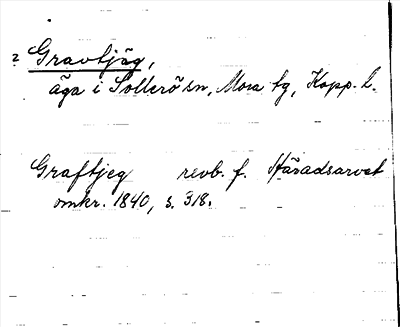 2 Gravtjäg,
äga i Sollerö sn, Mora tg, Kopp. l.
Graftjeg revb. f. Häradsarvet
omkr. 1840, s. 318.